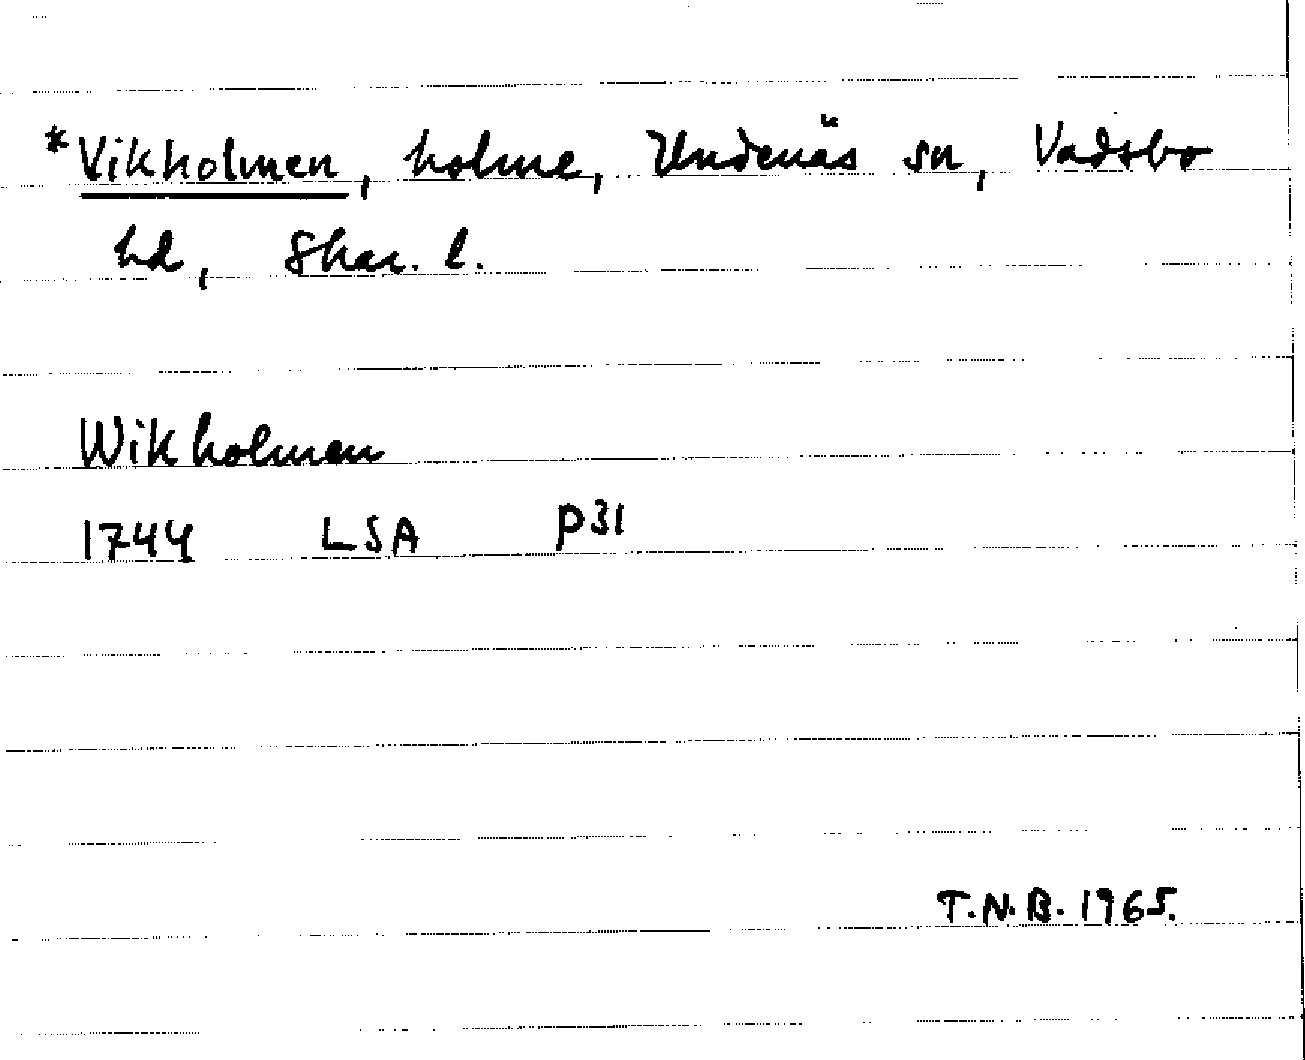 *Vikholmen, holme, Undenäs sn, Vadsbo
hd, Skar. l.
Wikholmen
1744 LSA P31
T.N.B. 1965.